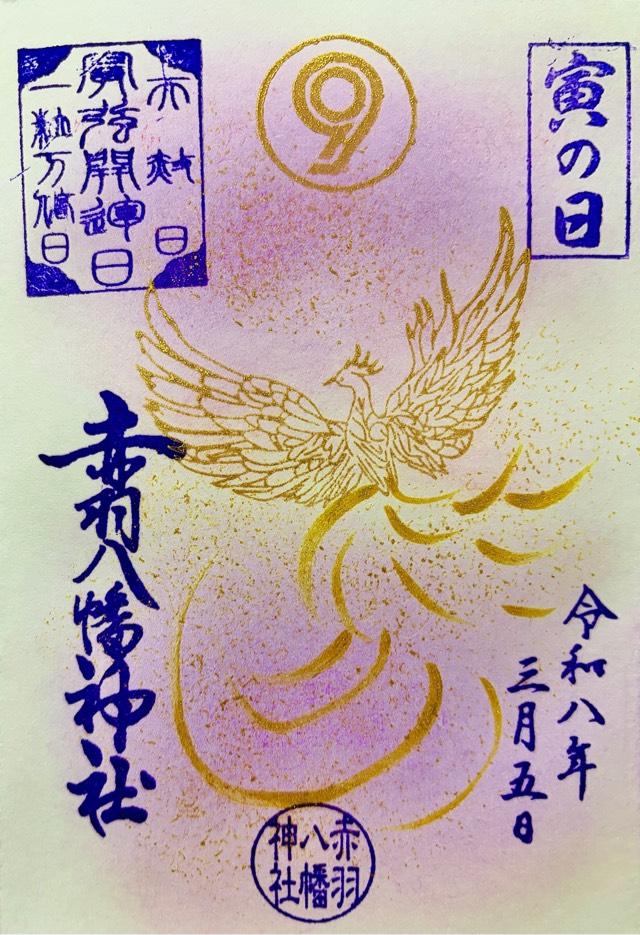 寅の日
天赦日
弁弥開運日
一粒万倍日
赤羽八幡神社
令和八年
三月五日
赤羽
八幡
神社